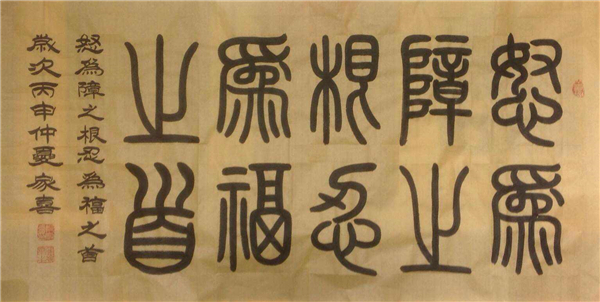 怒爲
障之
根忍
爲福
之首
怒為障之根忍為福之首
歲次丙申仲夏家喜